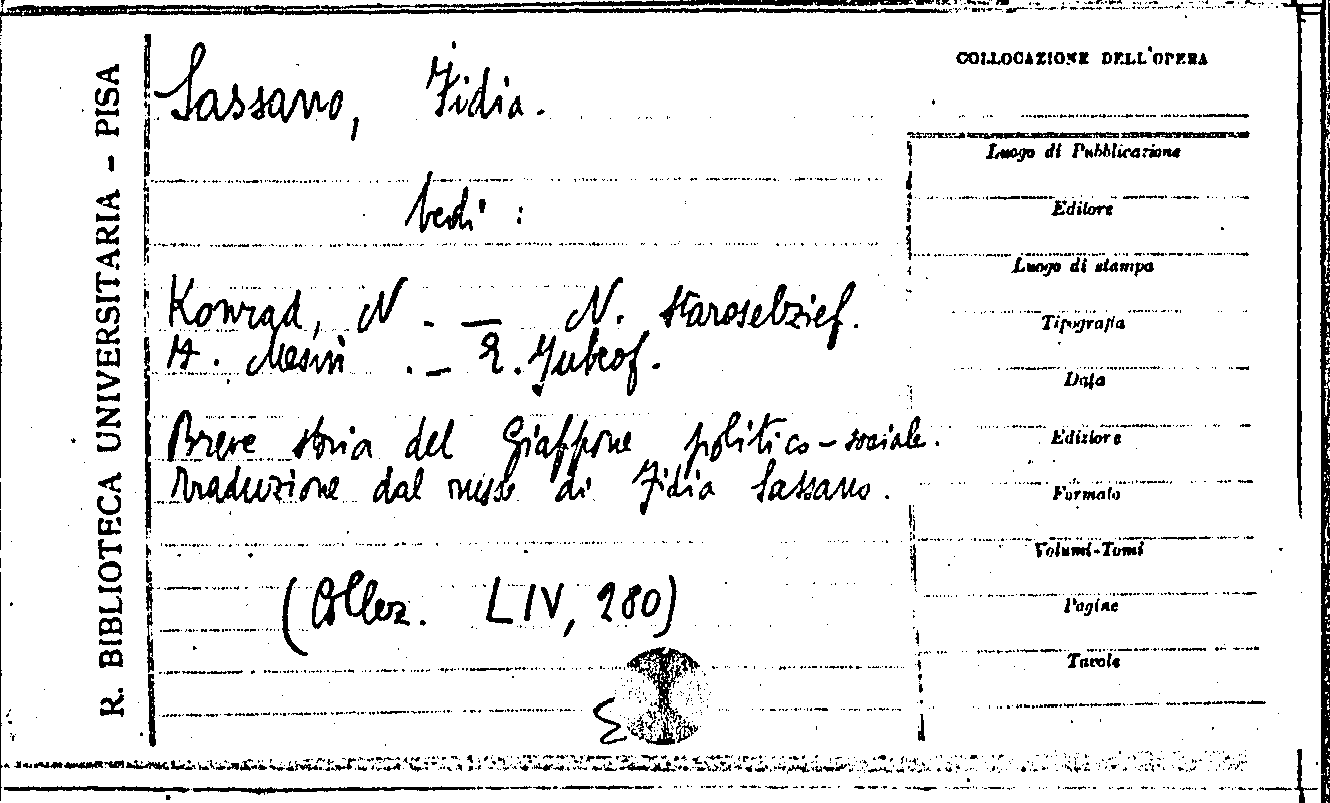 R. BIBLIOTECA UNIVERSITARIA - PISA
Sassano, Fidia.
Vedi :
Konrad, N. — N. Staroselzief.
H. Mesin. — E. Jukof.
Breve storia del Giappone politico-sociale.
Traduzione dal russo di Fidia Sassano.
(Collez. LIV, 280)
COLLOCAZIONE DELL'OPERA
Luogo di Pubblicazione
Editore
Luogo di stampa
Tipografia
Data
Edizione
Formato
Volumi-Tomi
Pagine
Tavole